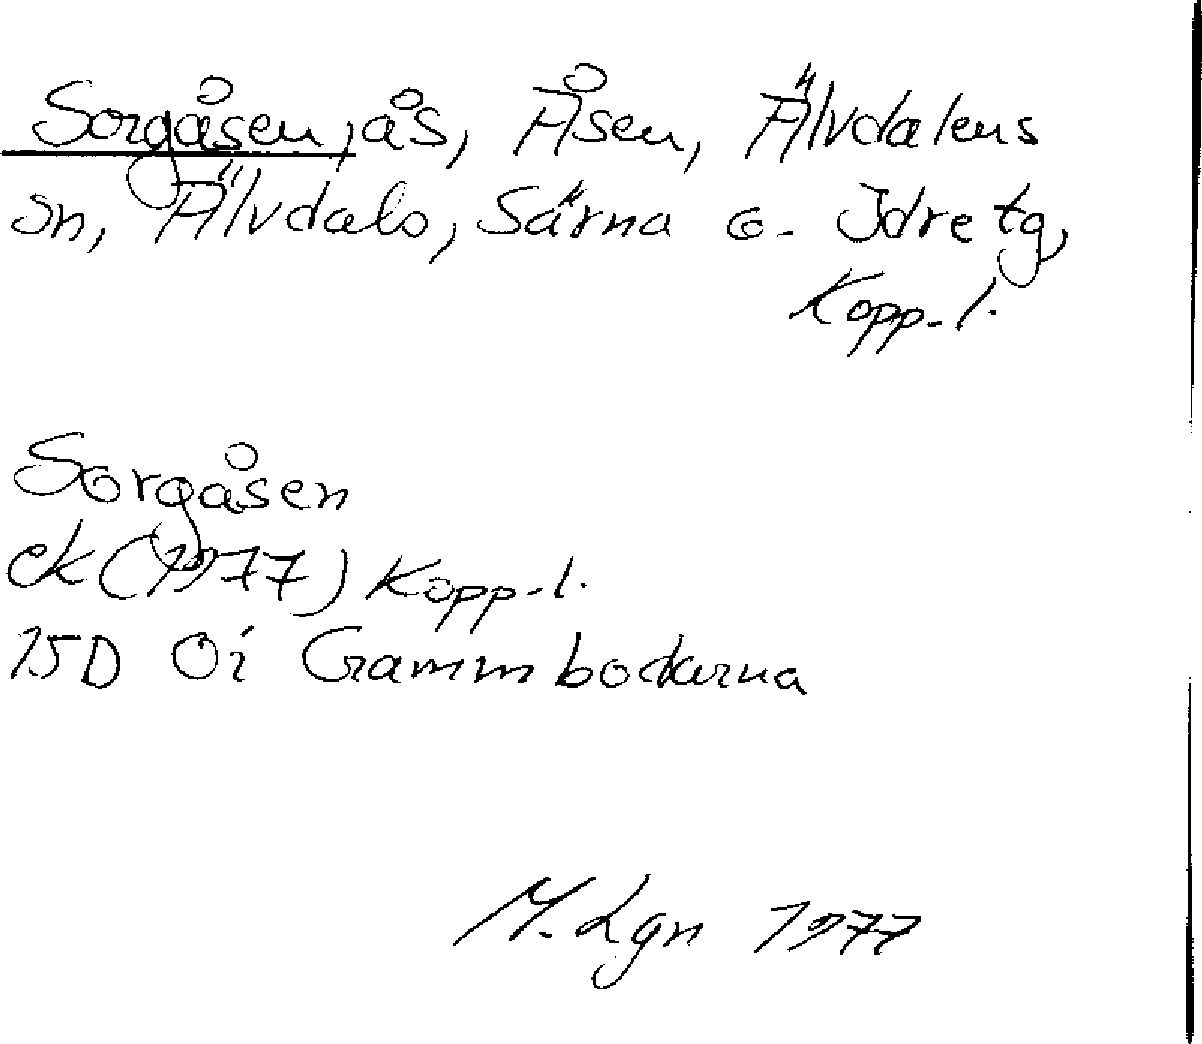 Sorgåsen, ås, Åsen, Älvdalens
sn, Älvdals, Särna o. Idre tg,
Kopp. l.
Sorgåsen
ek (1977) Kopp. l.
15D 0i Grammbodarna
M. Lgn 1977